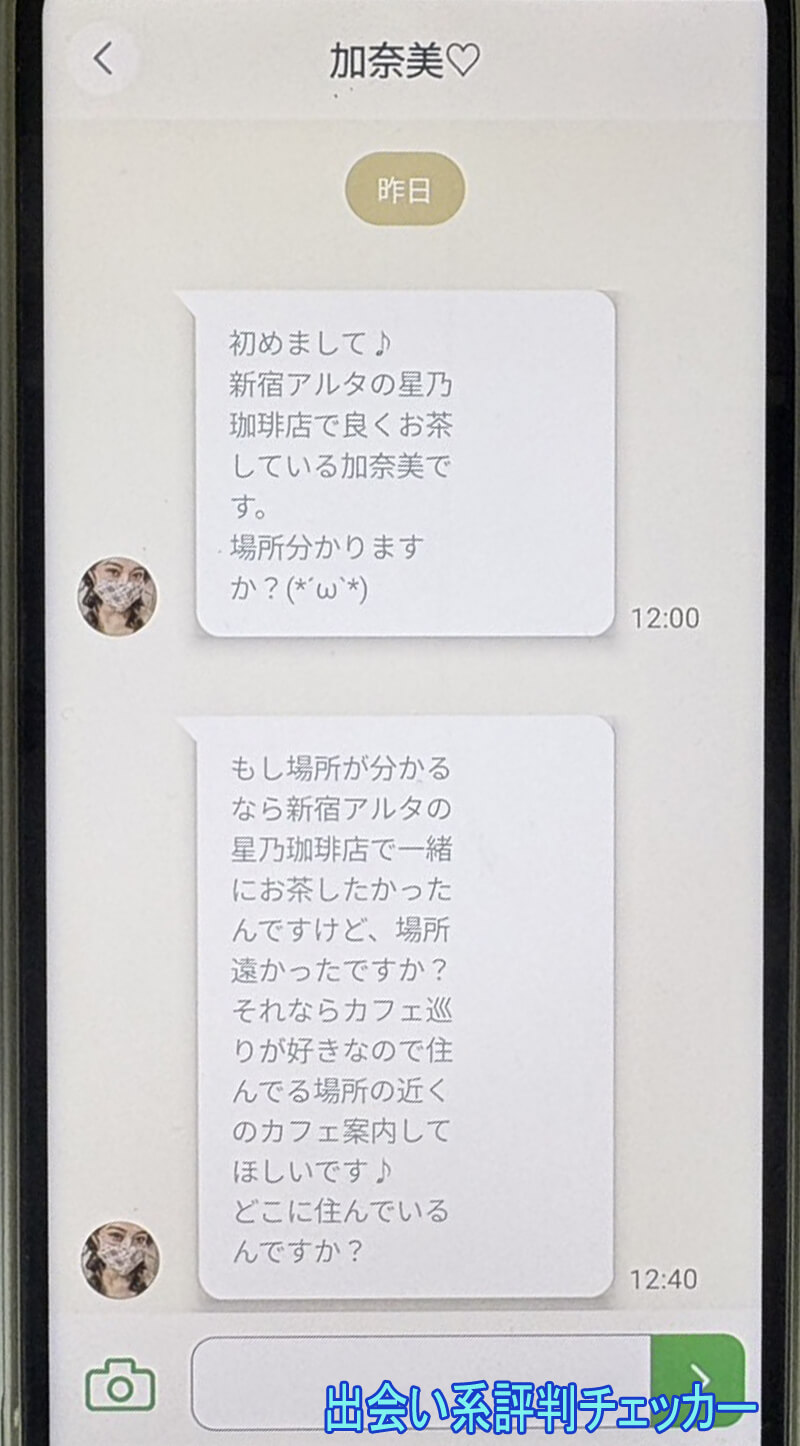 加奈美♡
昨日
初めまして♪
新宿アルタの星乃
珈琲店で良くお茶
している加奈美で
す。
場所分かります
か？(*´ω`*)
12:00
もし場所が分かる
なら新宿アルタの
星乃珈琲店で一緒
にお茶したかった
んですけど、場所
遠かったですか？
それならカフェ巡
りが好きなので住
んでる場所の近く
のカフェ案内して
ほしいです♪
どこに住んでいる
んですか？
12:40
出会い系評判チェッカー